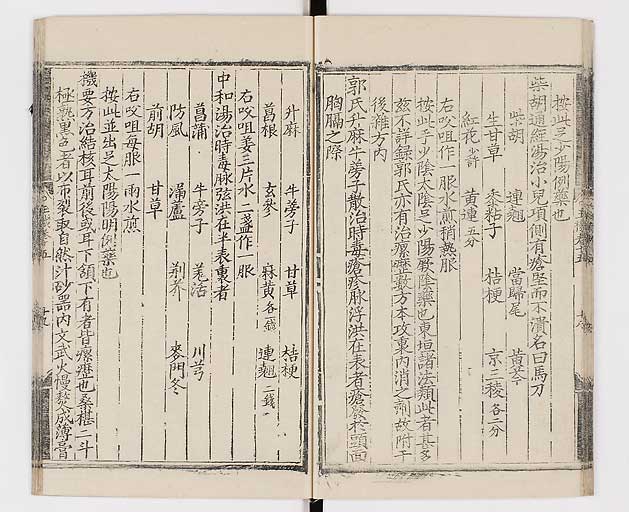 按此足少陽例藥也
柴胡通經湯治小兒項側有瘡堅而不潰名曰馬刀
柴胡 連翹 當歸尾 黃芩
生甘草 黍粘子 桔梗 京三稜各二分
紅花少許 黃連五分
右㕮咀作一服水煎稍熱服
按此手少陰太陰足少陽厥陰藥也東垣諸法類此者甚多
茲不詳錄郭氏亦有治瘰癧數方本攻裏內消之劑故附于
後雜方內
郭氏升麻牛蒡子散治時毒瘡疹脉浮洪在表者瘡發於頭面
胸膈之際
升麻 牛蒡子 甘草 桔梗
葛根 玄參 麻黃各一錢 連翹二錢
右㕮咀姜三片水二盞作一服
中和湯治時毒脉弦洪在半表裏者
菖蒲 牛旁子 羌活 川芎
防風 漏蘆 荊芥 麥門冬
前胡 甘草
右㕮咀每服一兩水煎
按此並出足太陽陽明例藥也
機要方治結核耳前後或耳下頷下有者皆瘰癧也桑椹二斗
極熟黑色者以布裂取自然汁砂器內文武火慢熬成薄膏